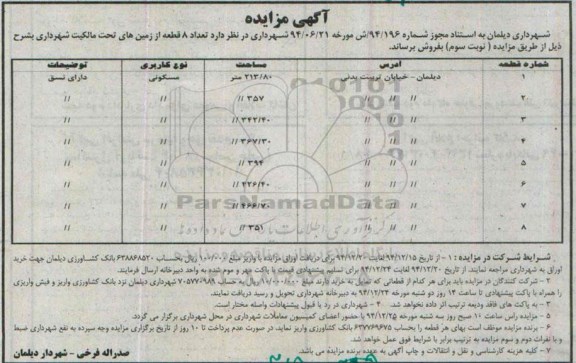 آگهی مزایده
شهرداری دیلمان به استناد مجوز شماره ۹۴/۱۹۶/ش مورخه ۹۴/۰۶/۲۱ شهرداری در نظر دارد تعداد ۸ قطعه از زمین های تحت مالکیت شهرداری بشرح
ذیل از طریق مزایده ( نوبت سوم) بفروش برساند.
شماره قطعه آدرس مساحت نوع کاربری توضیحات
۱ دیلمان - خیابان تربیت بدنی ۲۱۳/۸۰ متر مسکونی دارای نسق
۲ // // // ۳۵۷ // // //
۳ // // // ۳۴۲/۴۰ // // //
۴ // // // ۳۶۷/۳۰ // // //
۵ // // // ۳۹۴ // // //
۶ // // // ۲۲۶/۴۰ // // //
۷ // // // ۴۶۶/۷۰ // // //
۸ // // // ۳۵۱ // // //
ParsNamadData
شرایط شرکت در مزایده : ۱ - از تاریخ ۹۴/۱۲/۱۵ لغایت ۹۴/۱۲/۲۰ برای دریافت اوراق مزایده با واریز مبلغ ۱۰۰/۰۰۰ ریال بحساب ۶۳۸۸۶۸۵۲۰ بانک کشاورزی دیلمان جهت خرید
اوراق به شهرداری مراجعه نمایند. از تاریخ ۹۴/۱۲/۲۰ لغایت ۹۴/۱۲/۲۴ برای تسلیم پیشنهادی قیمت با پاکت مهر و موم شده به واحد دبیرخانه ارسال فرمایند.
۲ - شرکت کنندگان در مزایده باید برای هر کدام از قطعاتی که تمایل به خرید دارند مبلغ ریال به حساب ۷۰۵۷۷۶۹۸۹ شهرداری دیلمان نزد بانک کشاورزی واریز و فیش واریزی
را همراه با پاکت پیشنهادی تا ساعت ۱۴ روز دو شنبه مورخه ۹۴/۱۲/۲۴ به دبیرخانه شهرداری تحویل و رسید دریافت نمایند.
۳ - به پاکت های فاقد سپرده ترتیب اثر داده نخواهد شد. ۴ - شهرداری در رد یا قبول پیشنهادات واصله مختار است.
۵ - مزایده راس ساعت ۱۰ صبح روز سه شنبه مورخه ۹۴/۱۲/۲۵ با حضور اعضای کمیسیون معاملات شهرداری در محل شهرداری برگزار می گردد.
۶ - برنده مزایده موظف است بهای هر قطعه را بحساب ۶۳۷۷۶۹۶۷۵ بانک کشاورزی واریز نماید، در صورت عدم پرداخت تا ۱۰ روز از تاریخ برگزاری مزایده وجه سپرده به نفع شهرداری ضبط
و با نفرات دوم و سوم مزایده به ترتیب برابر با شرایط فوق عمل خواهد شد.
۷ - کلیه هزینه کارشناسی و نقل و انتقالات و چاپ آگهی به عهده برنده مزایده می باشد.
صدراله فرخی - شهردار دیلمان